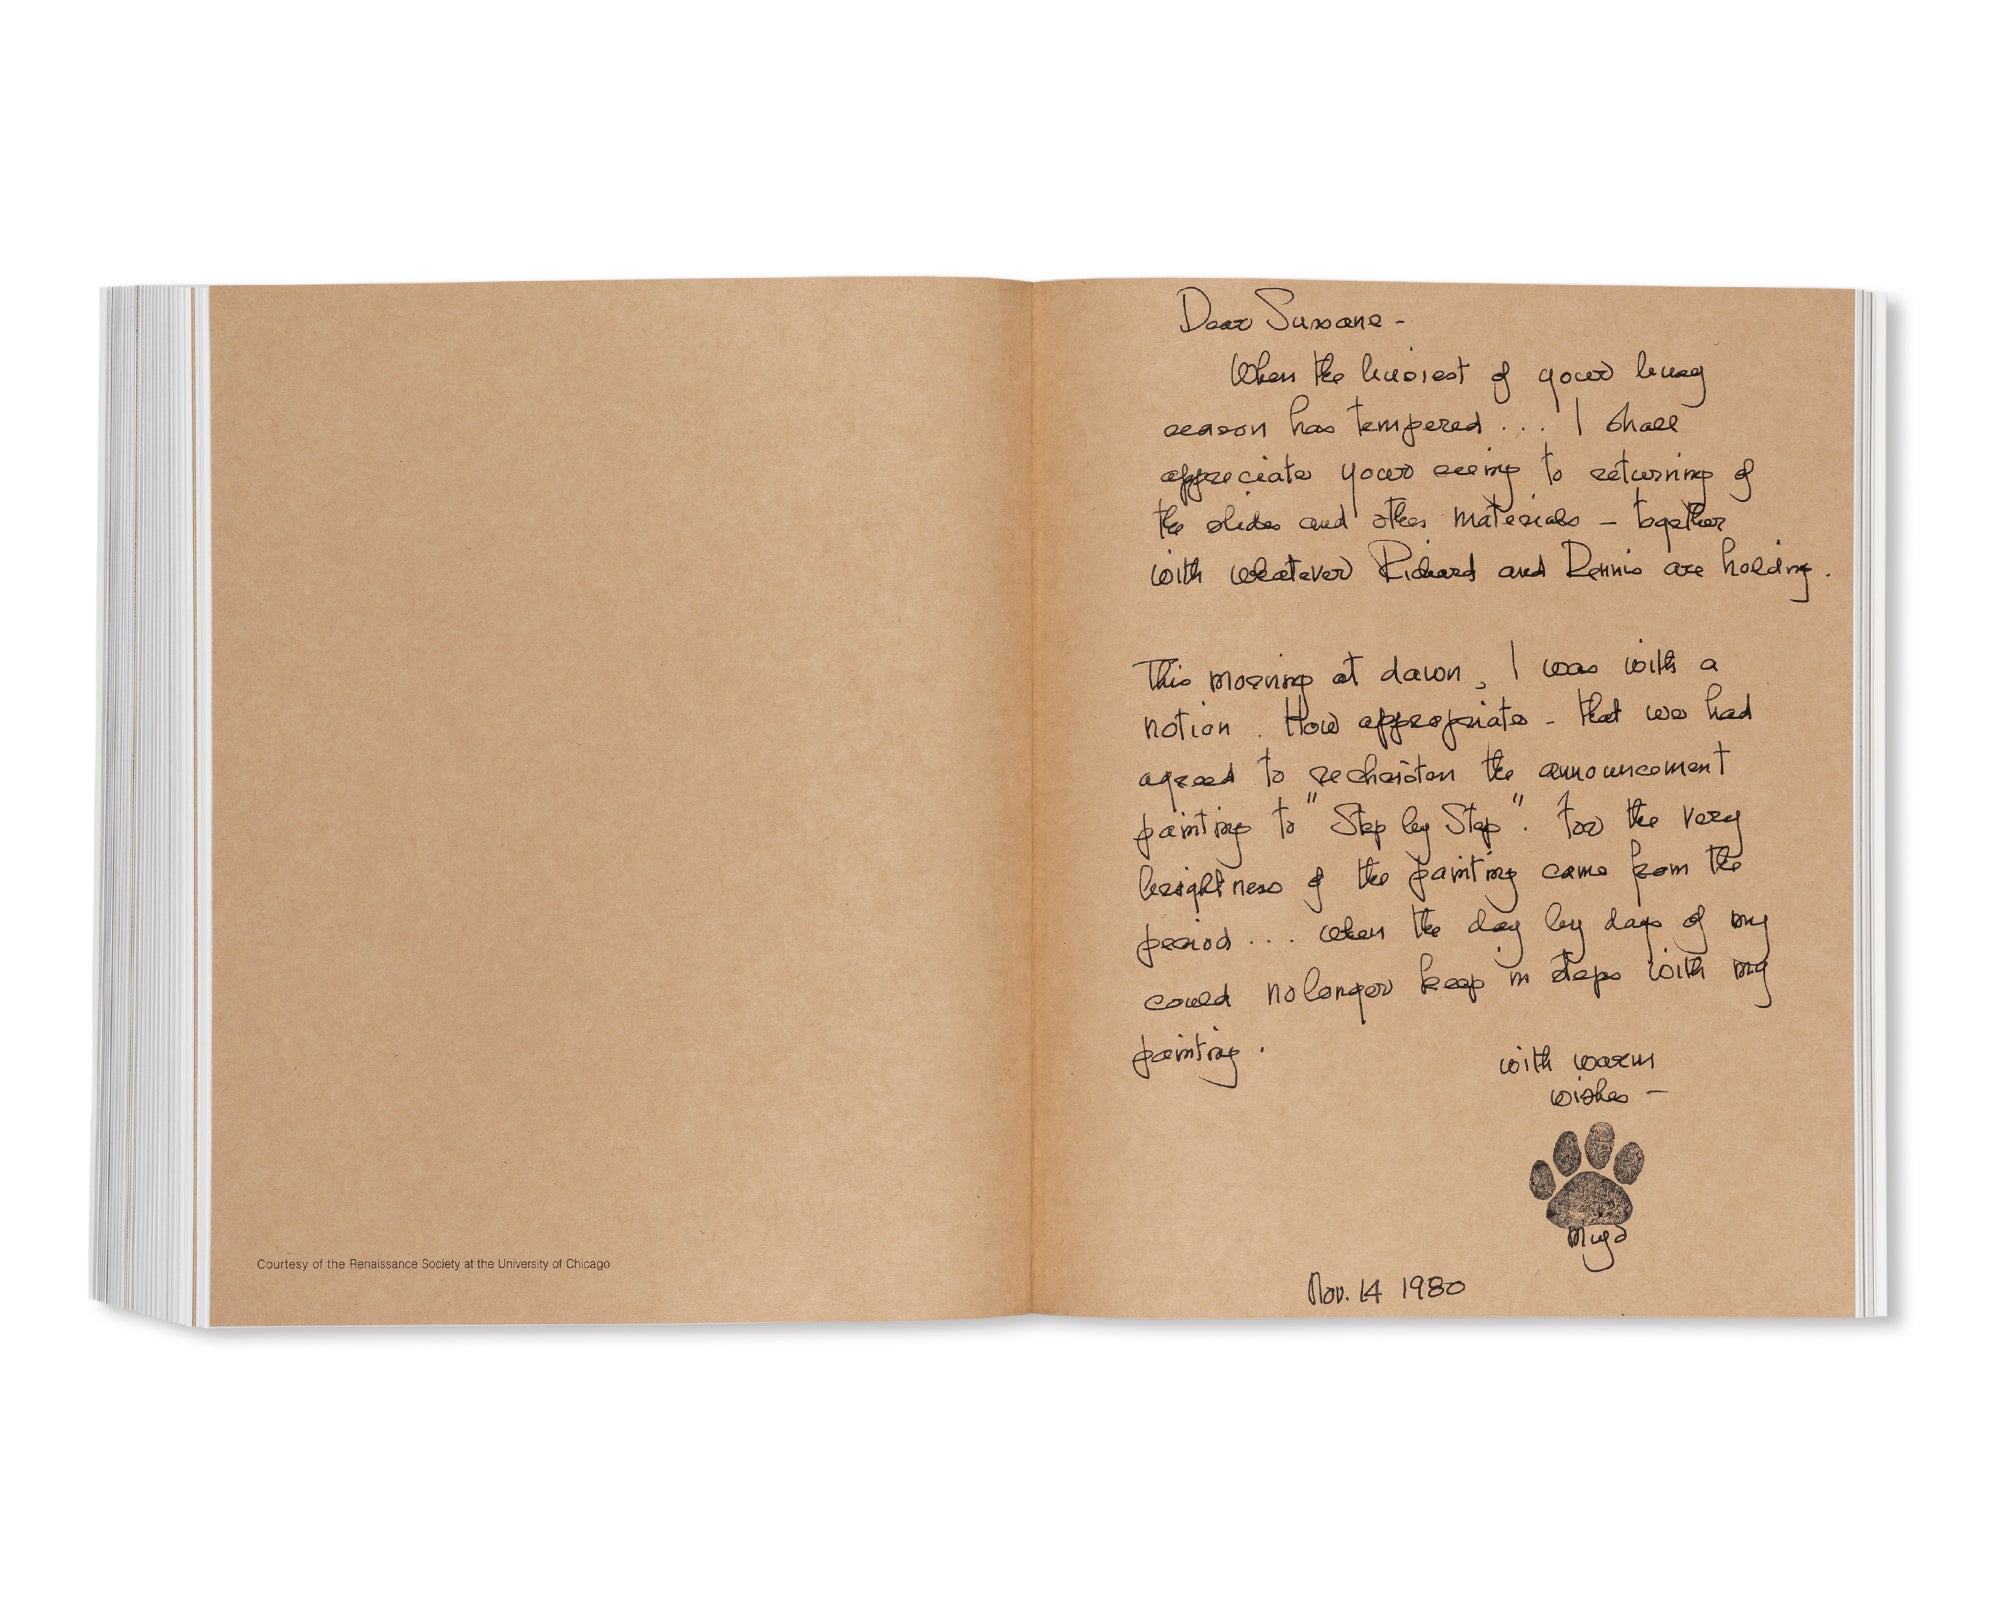 Courtesy of the Renaissance Society at the University of Chicago
Dear Suzanne -
When the busiest of your busy
season has tempered ... I shall
appreciate your seeing to returning of
the slides and other materials - together
with whatever Richard and Dennis are holding.
This morning at dawn, I was with a
notion. How appropriate - that we had
agreed to rechristen the announcement
painting to "Step by Step". For the very
brightness of the painting came from the
period ... when the day by days of my
could no longer keep in steps with my
painting.
with warm
wishes -
Miyo
Nov. 14 1980